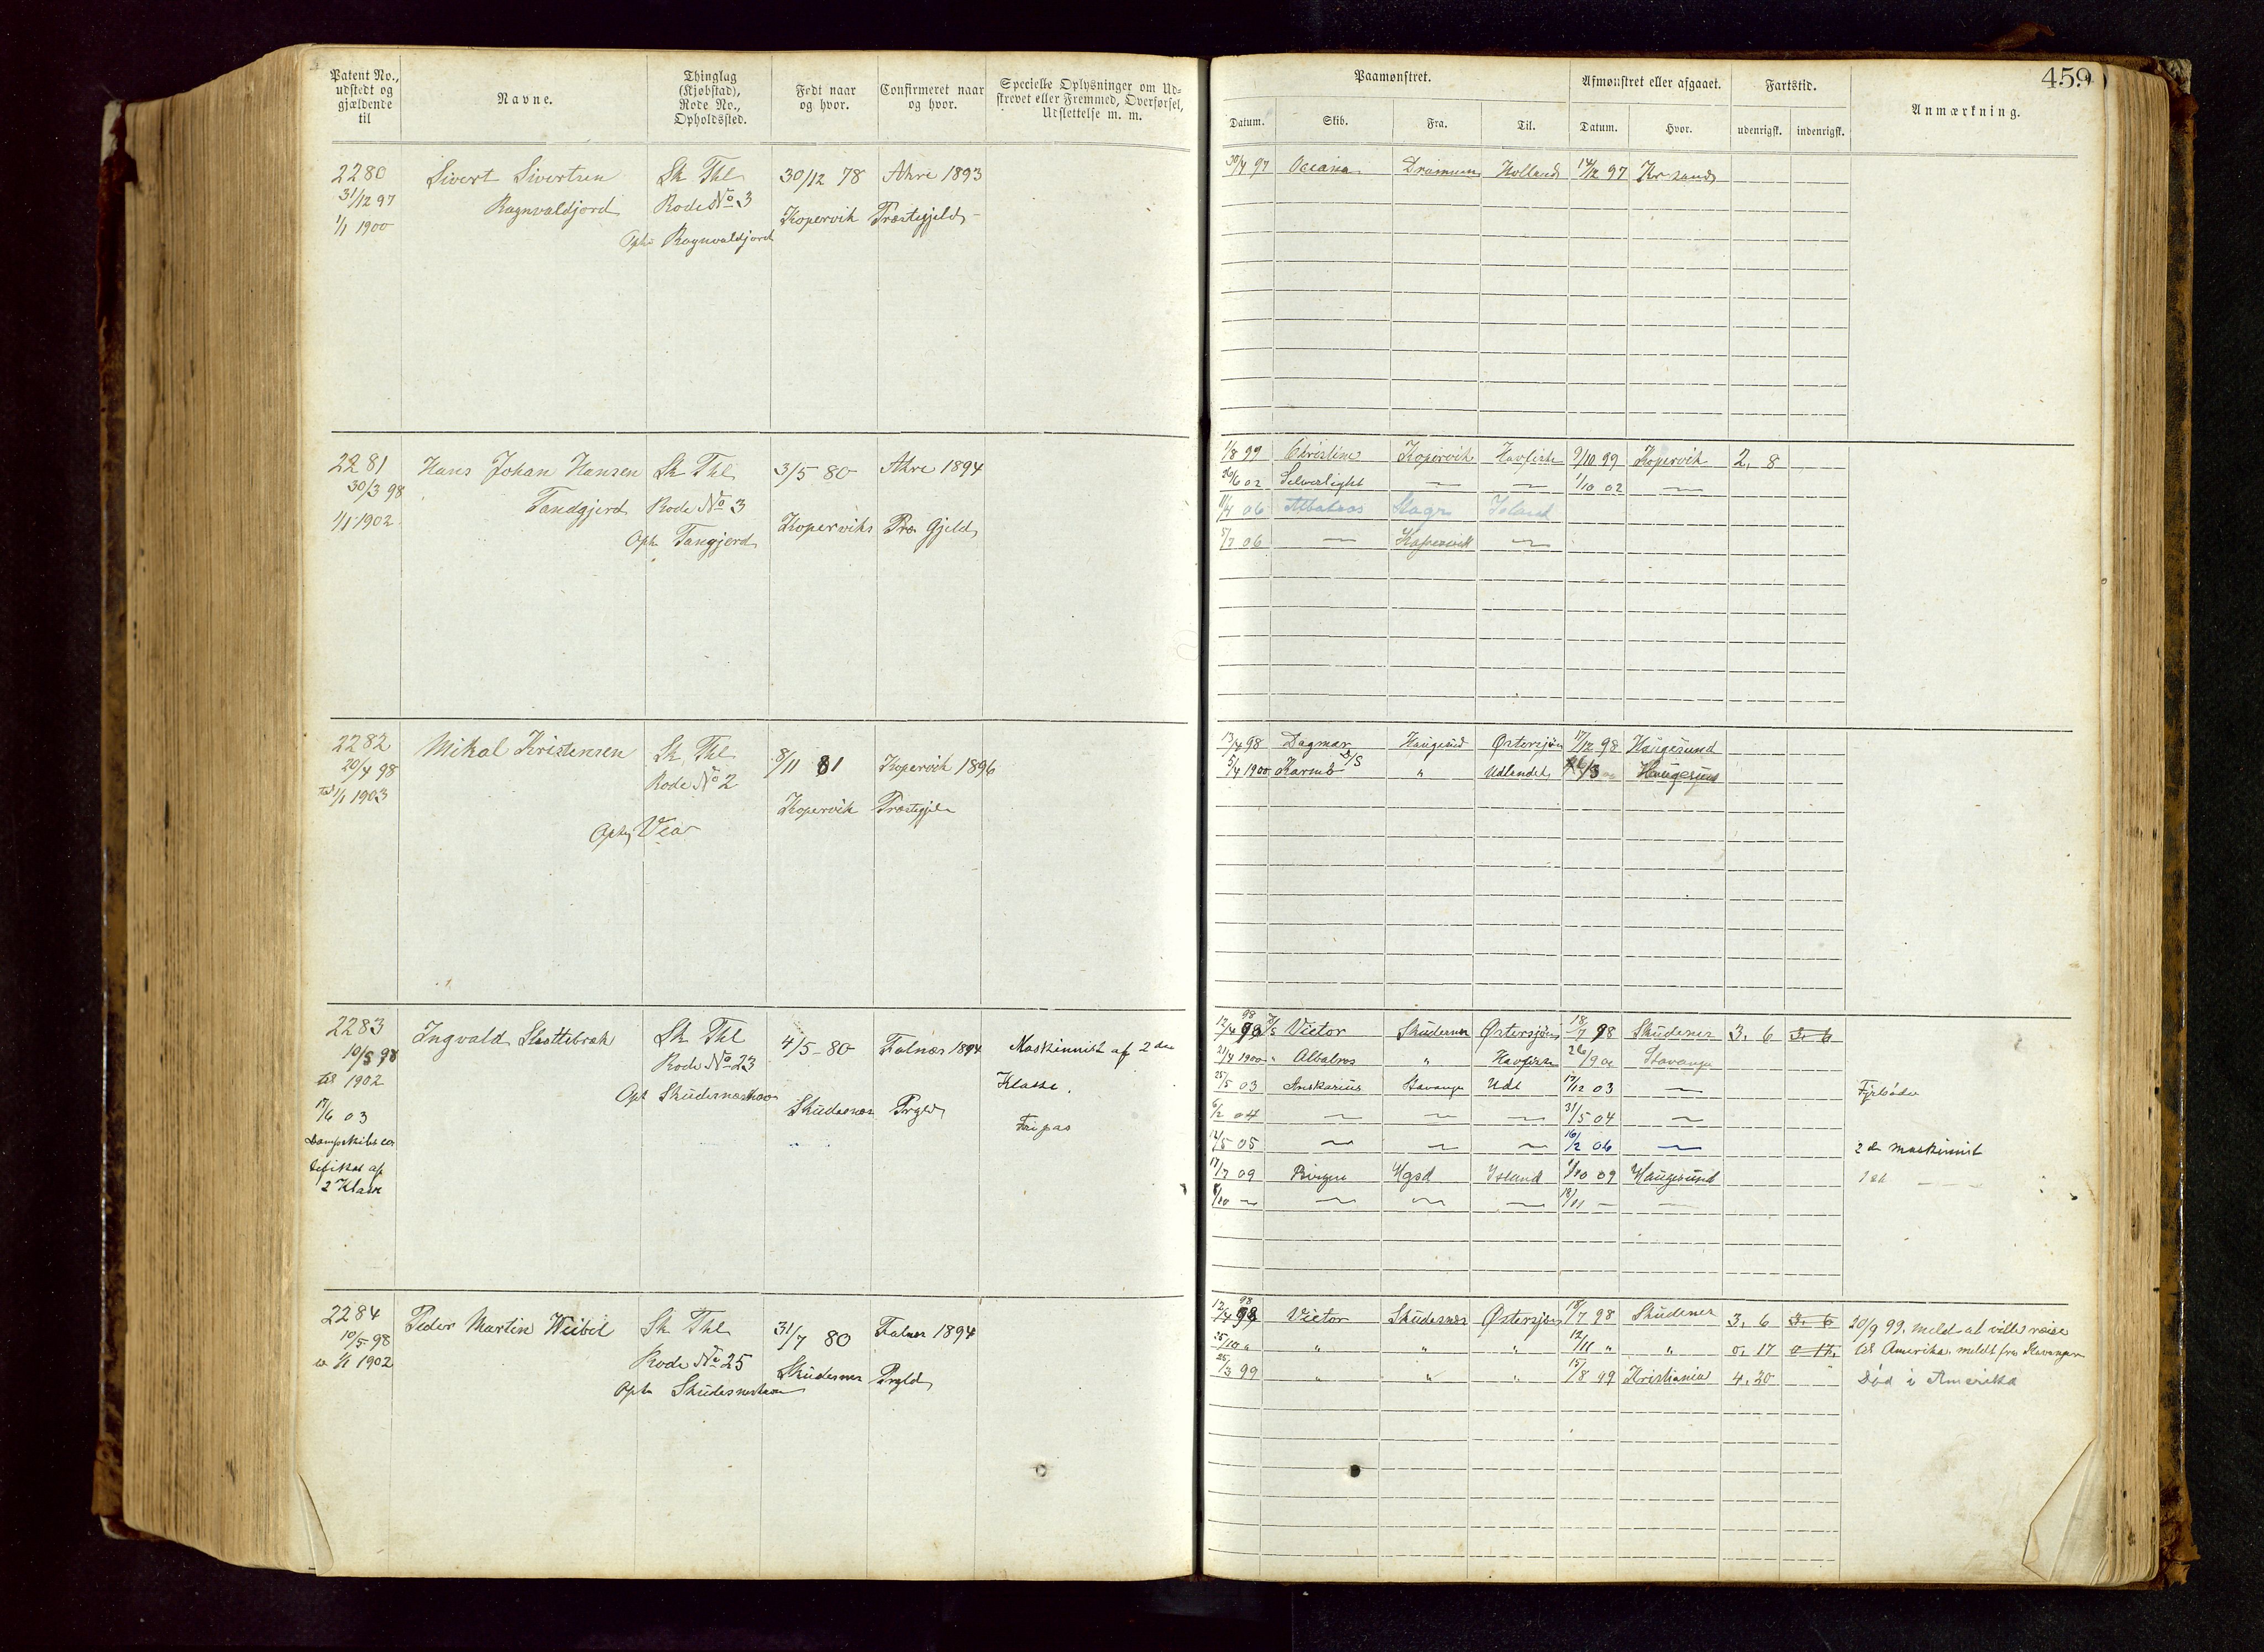 Patent No., udstedt og gjældende til
Navne.
Thinglag (Kjøbstad), Rode No., Opholdssted.
Født naar og hvor.
Confirmeret naar og hvor.
Specielle Oplysninger om Udskrevet eller Fremmed, Overførsel, Udslettelse m. m.
Paamønstret.
Afmønstret eller afgaaet.
Fartstid.
Anmærkning.
459
Datum. Skib. Fra. Til. Datum. Hvor. udenrigsk. indenrigsk.
2280 Sivert Sivertsen Sk Thl 30/12 78 Akre 1893
31/12 97 Ragnvaldjord Rode No 3 Kopervik Præstegjeld
1/1 1900 Oph Ragnvaldjord
30/4 97 Oceana Drammen Holland 14/12 97 Krsand
2281 Hans Johan Hansen Sk Thl 3/5 80 Akre 1894
30/3 98 Tandgjerd Rode No 3
1/1 1902 Koperviks Præ Gjeld
Oph Tangjerd
1/8 99 Christine Kopervik Havfiske 9/10 99 Kopervik 2. 8
20/6 02 Selverlight — — 1/10 02 —
11/4 06 Albatros Island
5/7 06 — Kopervik —
2282 Mikal Kristensen Sk Thl 8/11 81 Kopervik 1896
20/4 98 Rode No 2
til 1/1 1903 Kopervik Præstegjeld
Oph Vea
13/4 98 Dagmar Haugesund Østersjøen 17/12 98 Haugesund
5/4 1900 Karmö D/S " Udlandet Haugesund
2283 Ingvald Slottebrak Sk Thl 4/5 80 Falnæs 1894 Maskinnist af 2den
10/5 98 Rode No 23 Klasse.
til 1902 Oph Skudesneshavn Skudesnes Prgld
17/6 03 Fripas
Dampskibs cer
tefikat af
2 Klase
12/4 98 Victor Skudesnes Østersjøen 18/7 98 Skudenes 3. 6 3. 6
21/4 1900 " Albatros " Havfiske 26/9 00 Stavanger
25/5 03 Anskarius Stavanger Udl 17/12 03 — Fyrböder
6/2 04 — — — 31/5 04 —
12/5 05 — — — 16/2 06 — 2d maskinnist
17/7 09 Hgsd Island 1/10 09 Haugesund 1st — — —
8/10 — — — — 19/11 — —
2284 Peder Martin Weibel Sk Thl 31/7 80 Falnes 1894
10/5 98 Rode No 25 Skudesnes Prgld
1/1 1902 Oph Skudesneshavn
12/4 98 Victor Skudesnes Østersjøen 18/7 98 Skudenes 3. 6 3. 6 20/9 99. meldt at ville reise
25/10 " " " " 12/11 " " 0. 17 0 17. til Amerika, meldt fra Stavanger
25/3 99 " " " 15/8 99 Kristiania 4. 20 " Död i Amerika